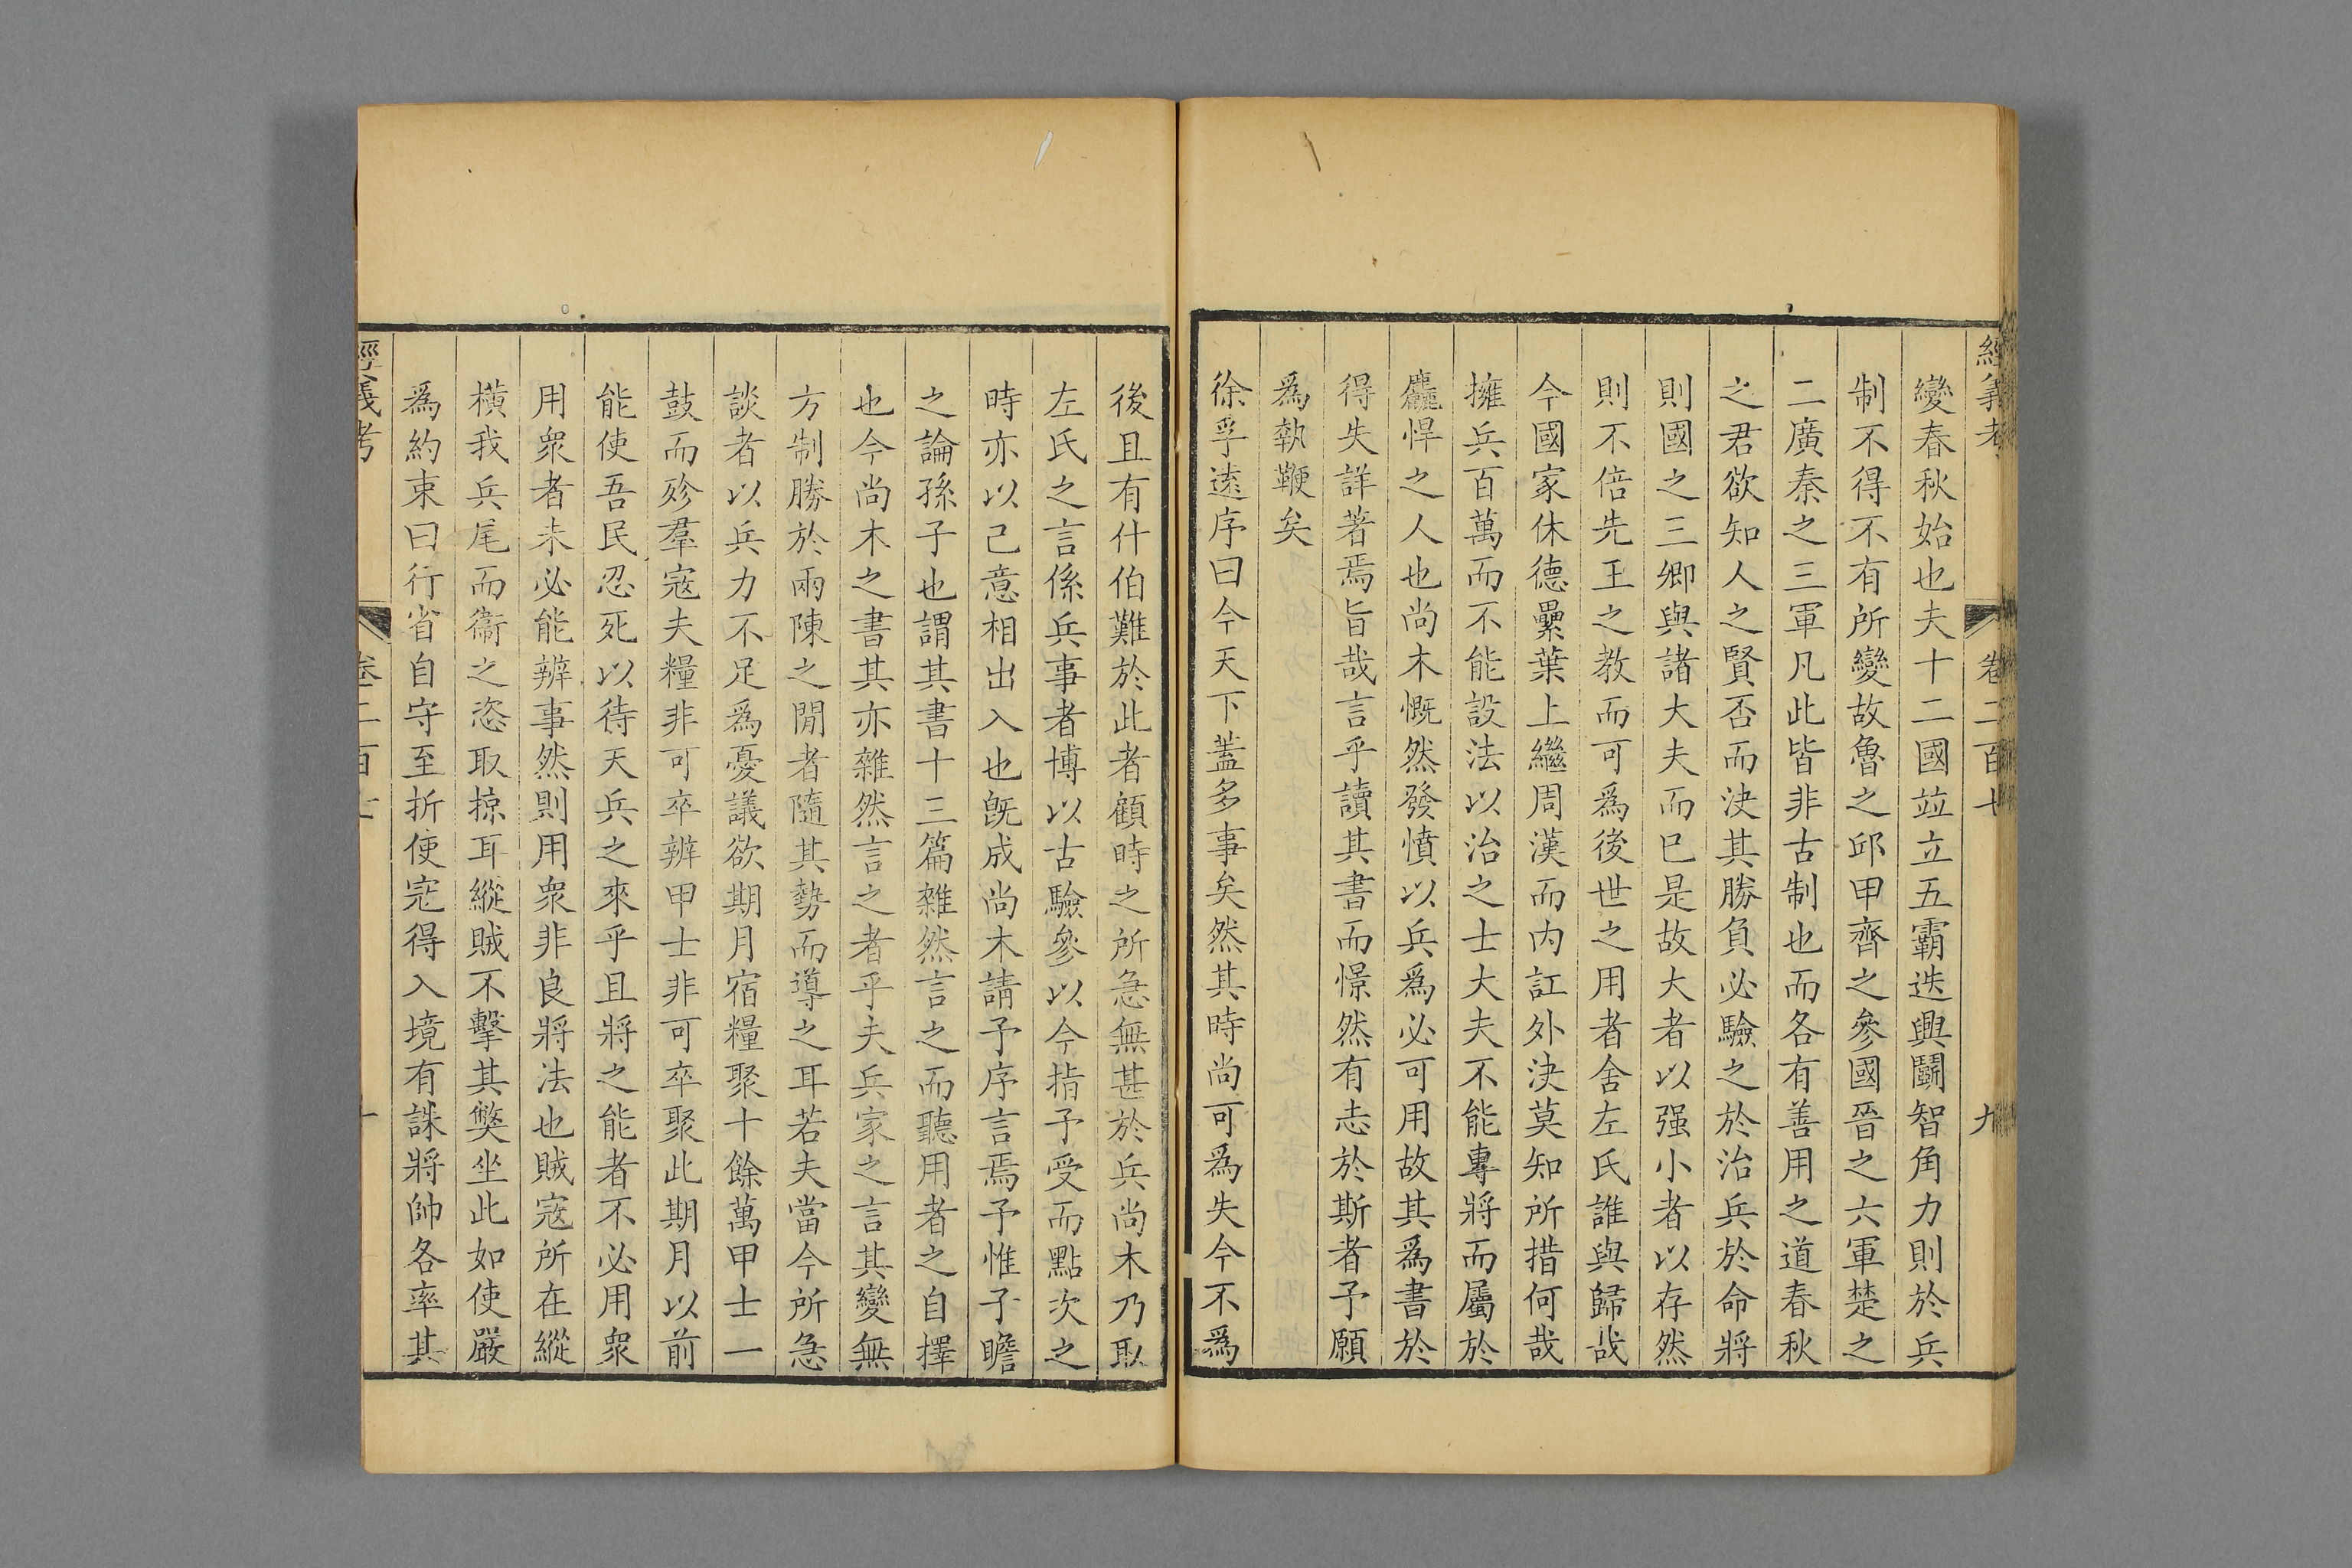 經義考
卷二百十
九
變春秋始也夫十二國竝立五霸迭興鬭智角力則於兵
制不得不有所變故魯之邱甲齊之參國晉之六軍楚之
二廣秦之三軍凡此皆非古制也而各有善用之道春秋
之君欲知人之賢否而決其勝負必驗之於治兵於命將
則國之三卿與諸大夫而已是故大者以强小者以存然
則不倍先王之教而可爲後世之用者舍左氏誰與歸哉
今國家休德纍葉上繼周漢而内訌外決莫知所措何哉
擁兵百萬而不能設法以治之士大夫不能專將而屬於
麤悍之人也尚木慨然發憤以兵爲必可用故其爲書於
得失詳著焉旨哉言乎讀其書而憬然有志於斯者予願
爲執鞭矣
徐孚遠序曰今天下蓋多事矣然其時尚可爲失今不爲
後且有什伯難於此者顧時之所急無甚於兵尚木乃取
左氏之言係兵事者博以古驗參以今指予受而點次之
時亦以己意相出入也旣成尚木請予序言焉予惟子瞻
之論孫子也謂其書十三篇雜然言之而聽用者之自擇
也今尚木之書其亦雜然言之者乎夫兵家之言其變無
方制勝於兩陳之閒者隨其勢而導之耳若夫當今所急
談者以兵力不足爲憂議欲期月宿糧聚十餘萬甲士一
鼓而殄羣寇夫糧非可卒辨甲士非可卒聚此期月以前
能使吾民忍死以待天兵之來乎且將之能者不必用衆
用衆者未必能辨事然則用衆非良將法也賊寇所在縱
橫我兵尾而衞之恣取掠耳縱賊不擊其獘坐此如使嚴
爲約束曰行省自守至折使寇得入境有誅將帥各率其
經義考
卷二百十
十